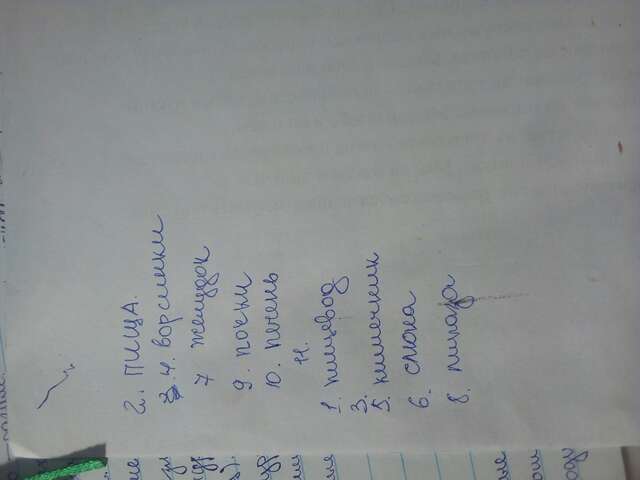 2. ПИЩА.
4. ворсинки
7 желудок
9. почки
10. печень
11.
1. пищевод
3.
5. кишечник
6. слюна
8. липаза